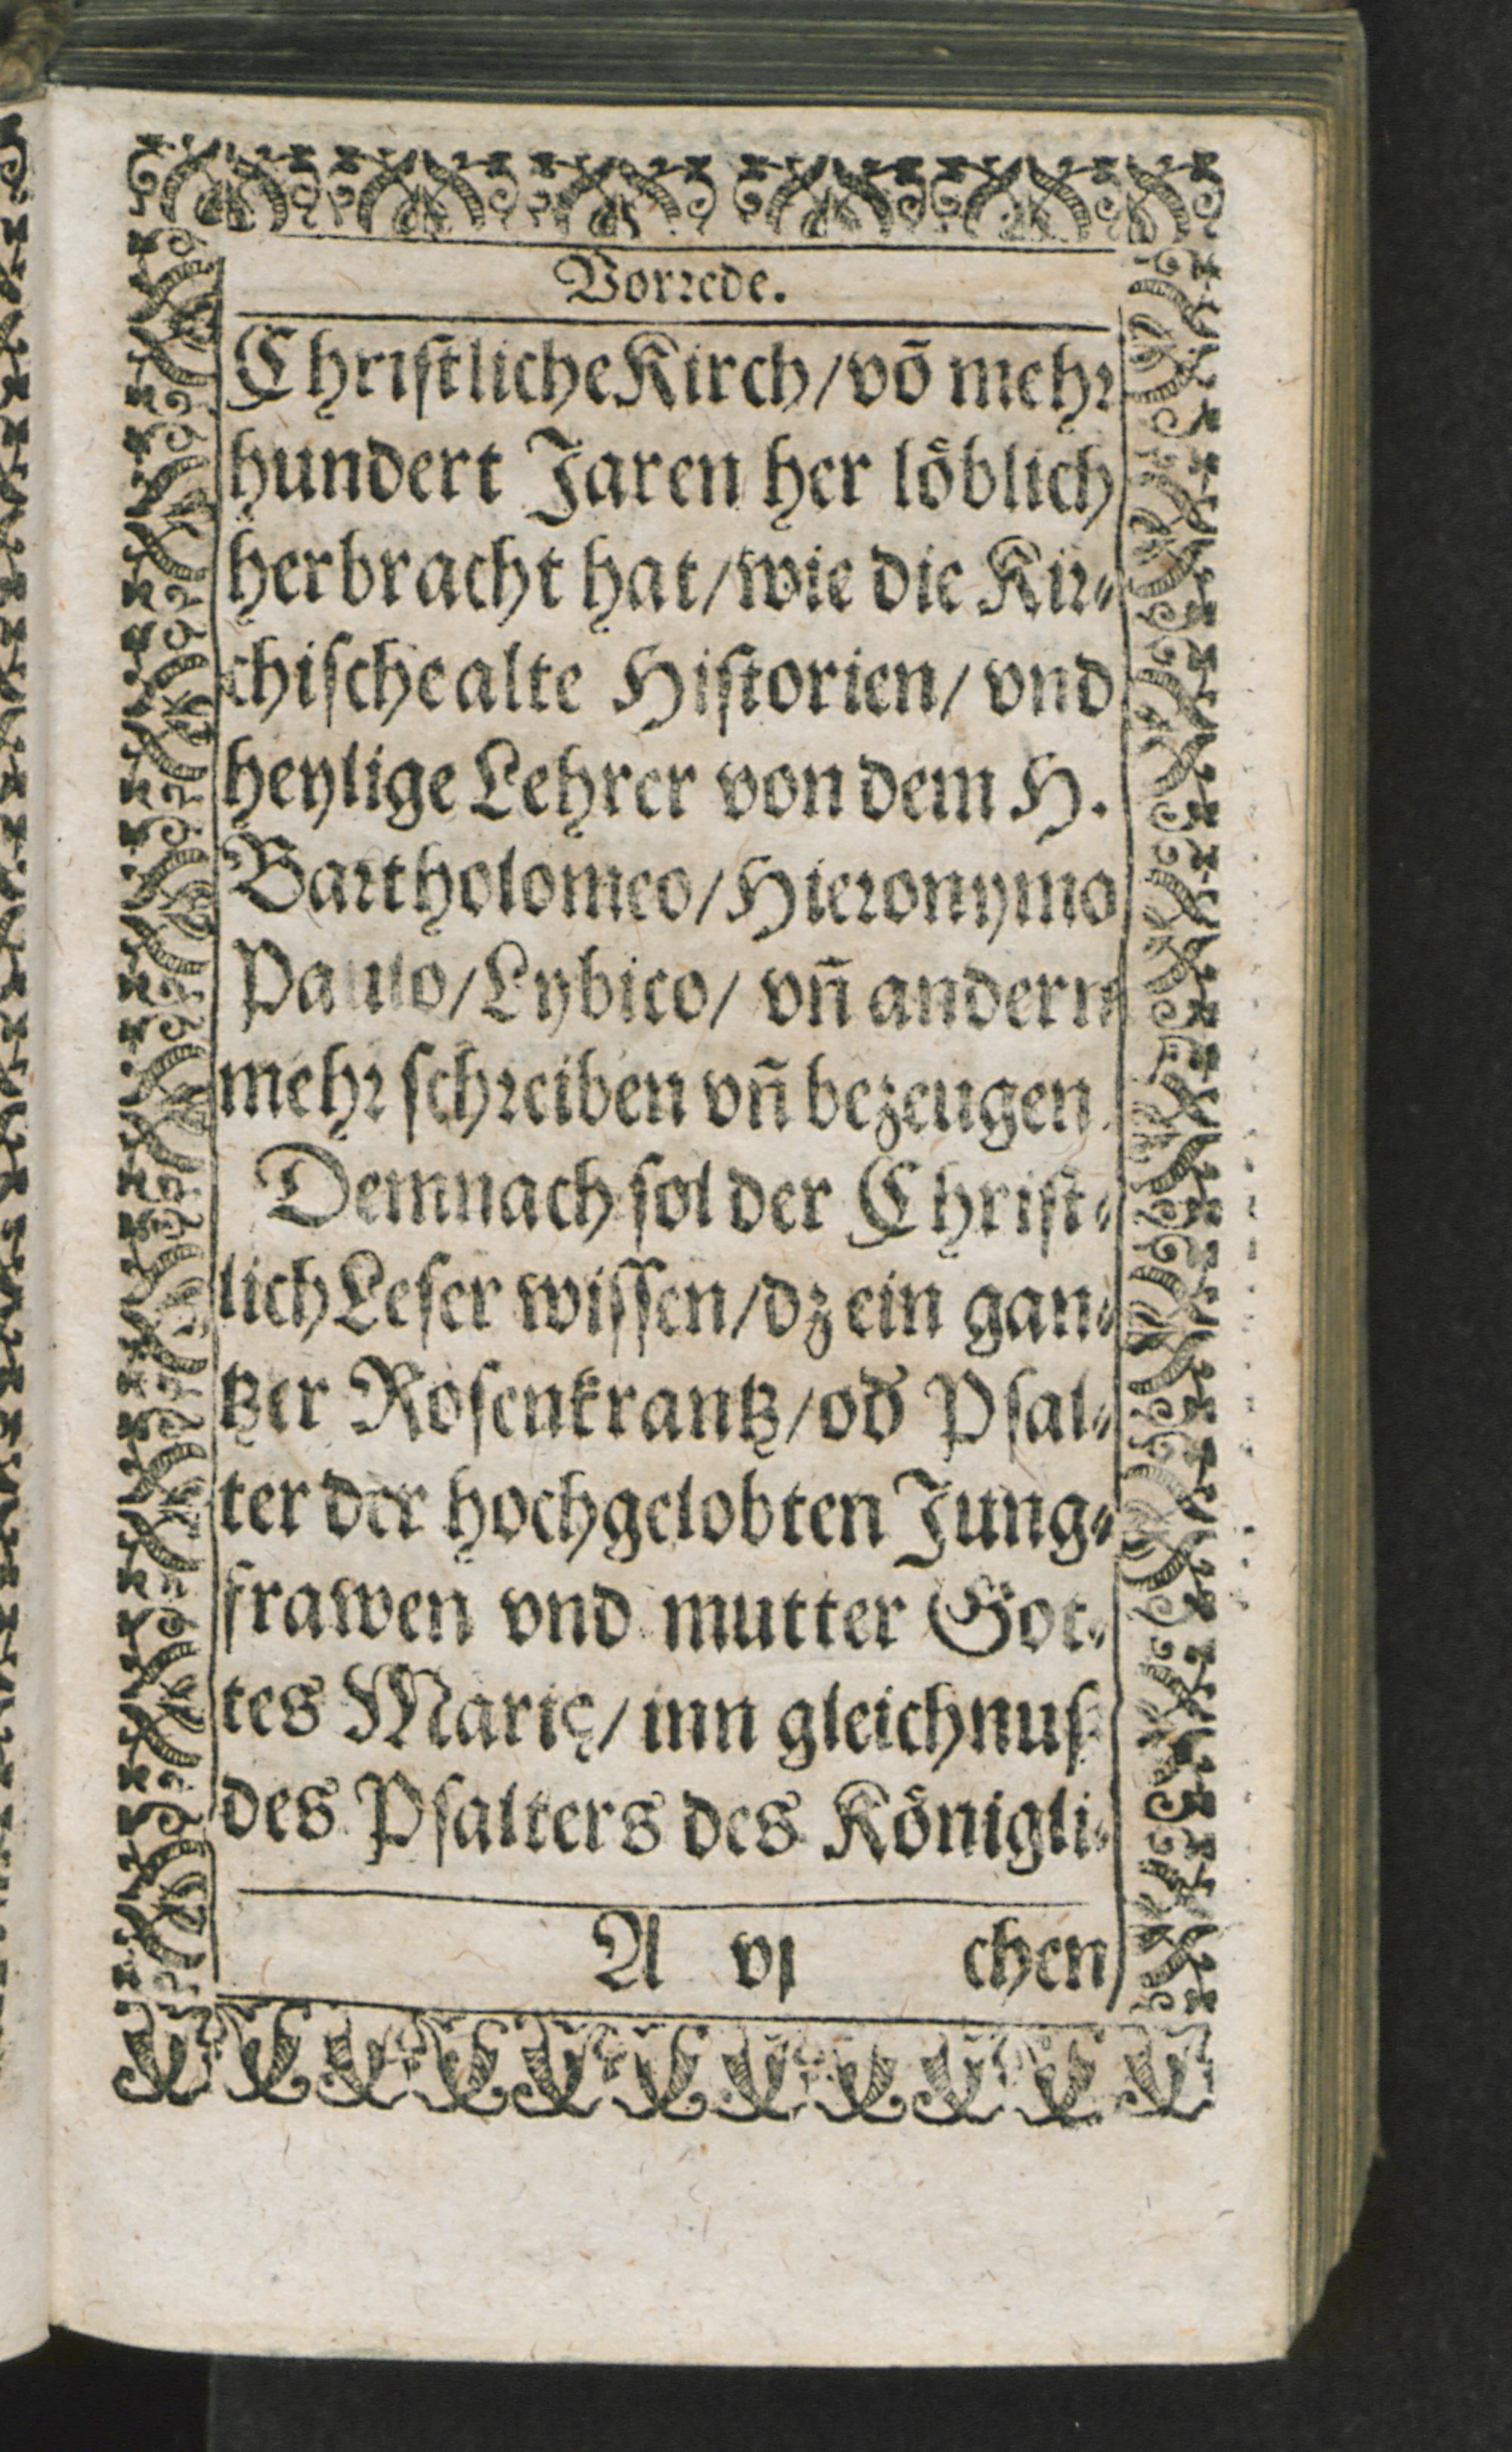 Vorꝛede.
Chriſtliche Kirch/ võ mehꝛ
hundert Jaren her loͤblich
herbracht hat/ wie die Kiꝛ⸗
chiſche alte Hiſtorien/ vnd
heylige Lehrer von dem H.
Baꝛtholomeo/ Hieꝛonymo
Paulo/ Lybico/ vñ andern
mehꝛ ſchꝛeiben vñ bezeugen.
Demnach ſol der Chriſt⸗
lich Leſer wiſſen/ dz ein gan⸗
tzer Roſenkrantz/ od̛ Pſal⸗
ter der hochgelobten Jung⸗
frawen vnd mutter Got⸗
tes Marię/ inn gleichnus
des Pſalters des Koͤnigli⸗
A vj chen